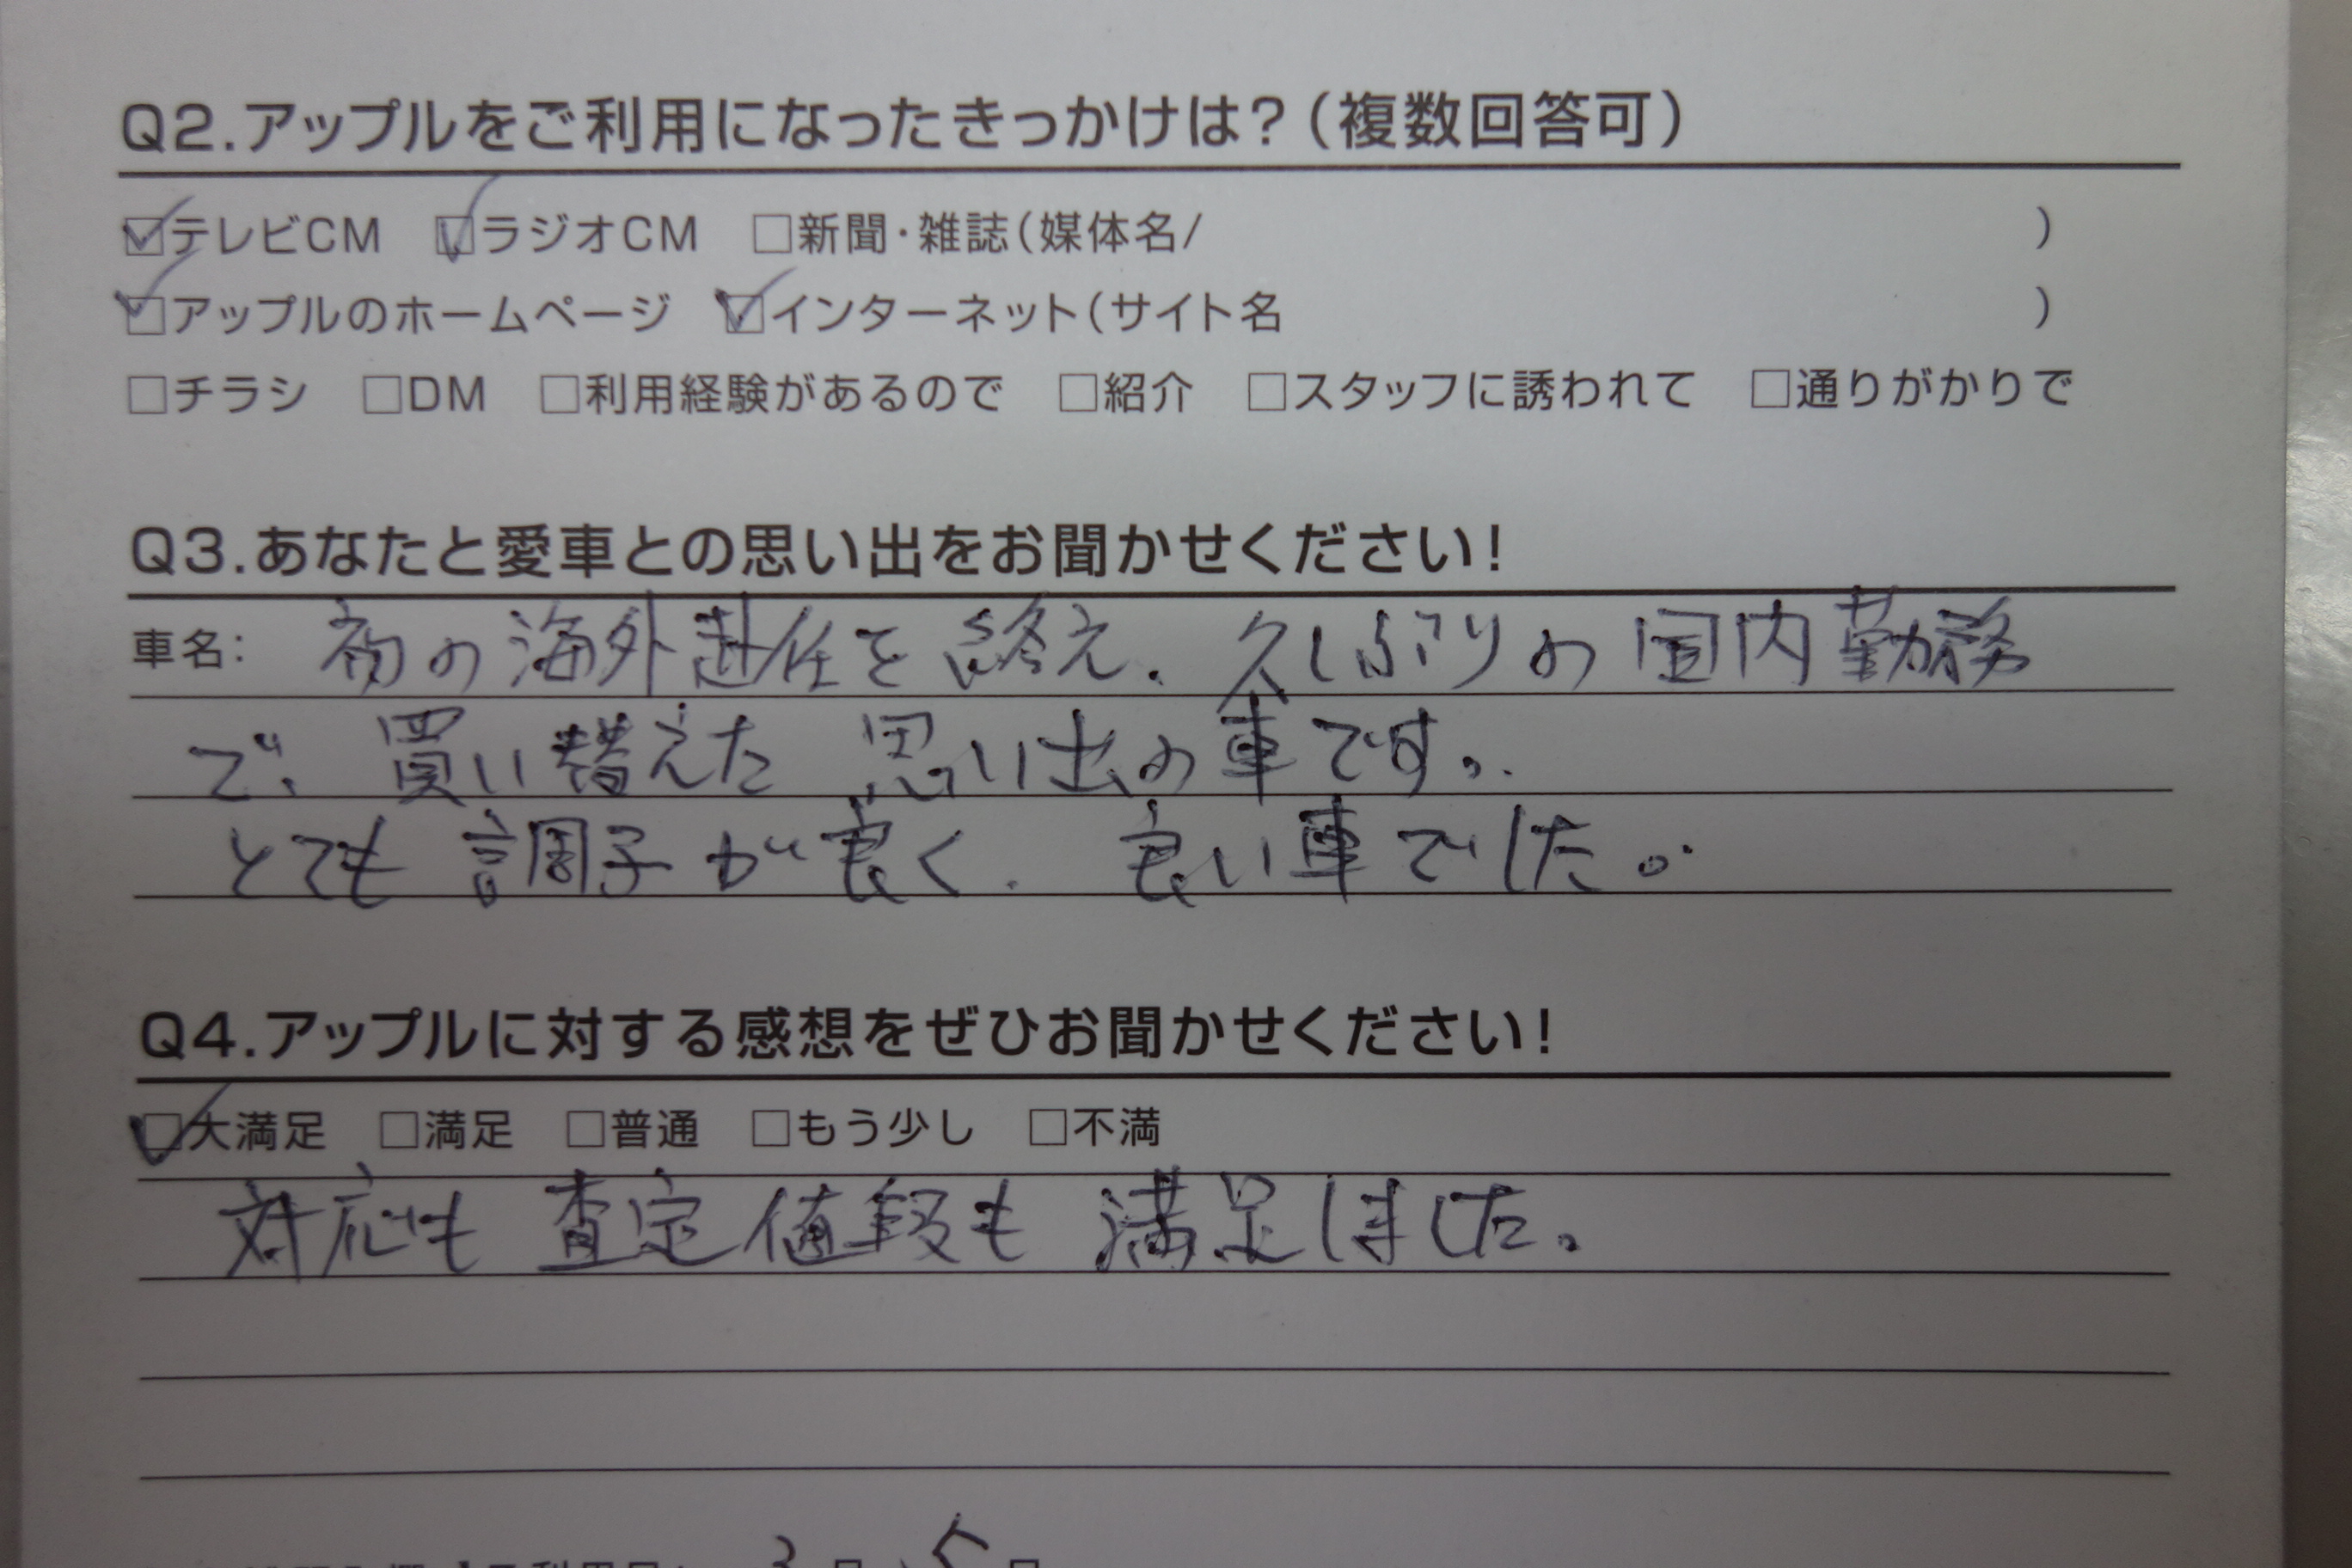 Q2.アップルをご利用になったきっかけは?(複数回答可)
☑テレビCM ☑ラジオCM □新聞・雑誌(媒体名/ )
☑アップルのホームページ ☑インターネット(サイト名 )
□チラシ □DM □利用経験があるので □紹介 □スタッフに誘われて □通りがかりで
Q3.あなたと愛車との思い出をお聞かせください!
車名: 初の海外赴任を終え、久しぶりの国内勤務
で、買い替えた 思い出の車です。
とても調子が良く、良い車でした。
Q4.アップルに対する感想をぜひお聞かせください!
☑大満足 □満足 □普通 □もう少し □不満
対応も査定値段も満足しました。
3月5日